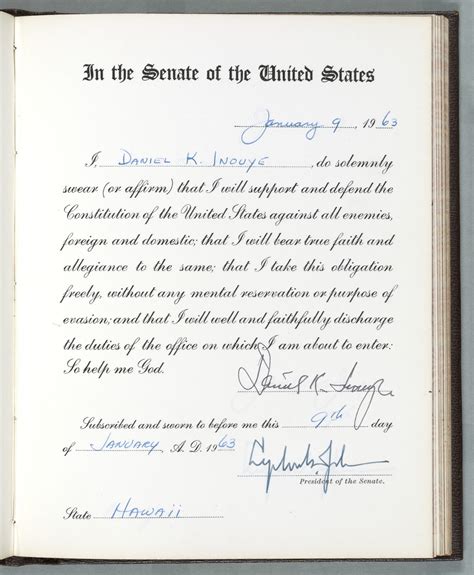 In the Senate of the United States
January 9, 1963
I, Daniel K. Inouye, do solemnly
swear (or affirm) that I will support and defend the
Constitution of the United States against all enemies,
foreign and domestic; that I will bear true faith and
allegiance to the same; that I take this obligation
freely, without any mental reservation or purpose of
evasion; and that I will well and faithfully discharge
the duties of the office on which I am about to enter:
So help me God.
Daniel K. Inouye
Subscribed and sworn to before me this 9th day
of January, A.D. 1963
Lyndon B. Johnson
President of the Senate.
State Hawaii